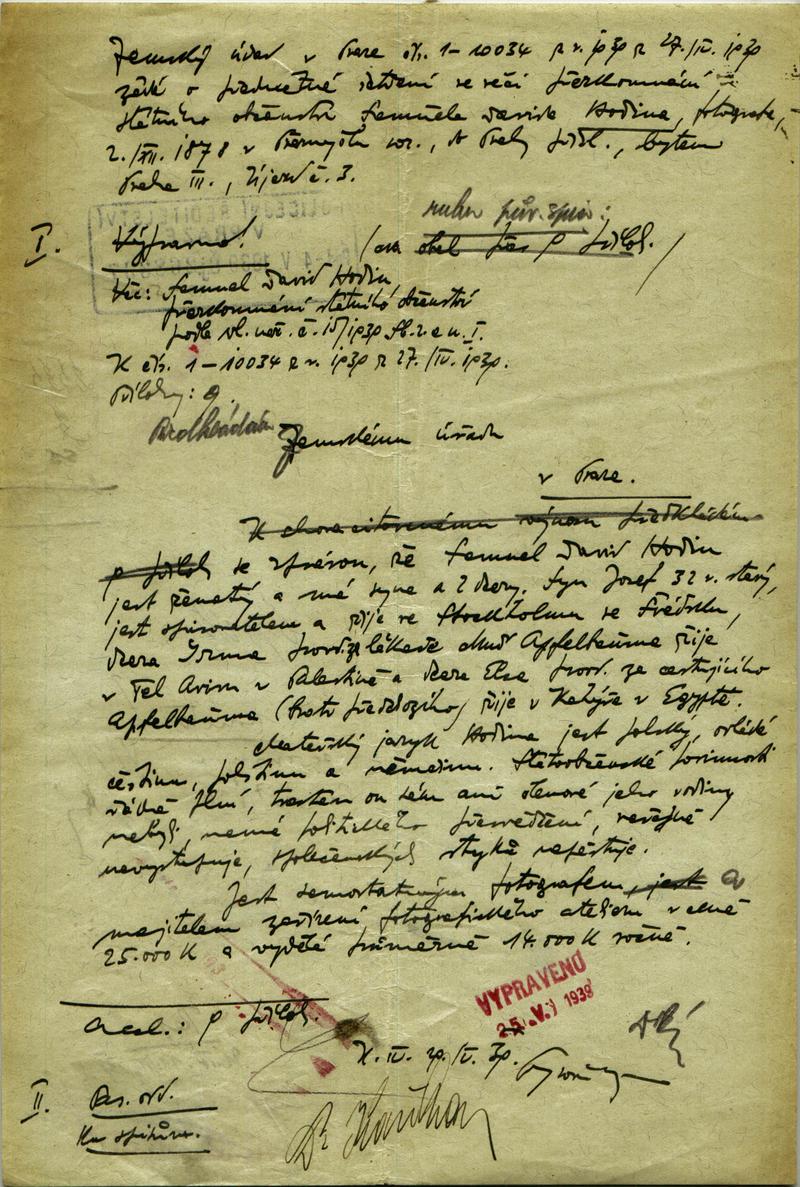 Zemský úřad v Praze čís. 1-10034 z r. 1939 z 27./IV. 1939
žádá o předmětné šetření ve věci přezkoumání
státního občanství Samuela Davida Hodina, fotografa,
2./XII. 1878 v Přemyšlu nar., do Prahy přísl., bytem
Praha III., Újezd č. 3.
I. Výpravna!
Věc: Samuel David Hodin
přezkoumání státního občanství
podle vl. nař. č. 15/1939 Sb. z. a n. I.
K čís. 1-10034 z r. 1939 z 27./IV. 1939.
Přílohy: 9.
Zemskému úřadu
v Praze.
K shora citovanému výnosu předkládám
se zprávou, že Samuel David Hodin
jest ženatý a má syna a 2 dcery. Syn Josef 32 r. starý,
jest spisovatelem a žije ve Stockholmu ve Švédsku,
dcera Irma provd. za lékaře MUDr Apfelbauma žije
v Tel Avivu v Palestině a dcera Elsa provd. za cestujícího
Apfelbauma (bratr předešlého) žije v Kahýře v Egyptě.
Mateřský jazyk Hodina jest polský, ovládá
češtinu, polštinu a němčinu. Státoobčanské povinnosti
řádně plní, trestán on sám ani členové jeho rodiny
nebyli, nemá politického přesvědčení, veřejně
nevystupuje, společenských styků nepěstuje.
Jest samostatným fotografem, jest a
majitelem zařízení fotografického atelieru v ceně
25.000 K a vydělá průměrně 14.000 K ročně.
VYPRAVENO
25. V. 1939
II. Pres. odd.